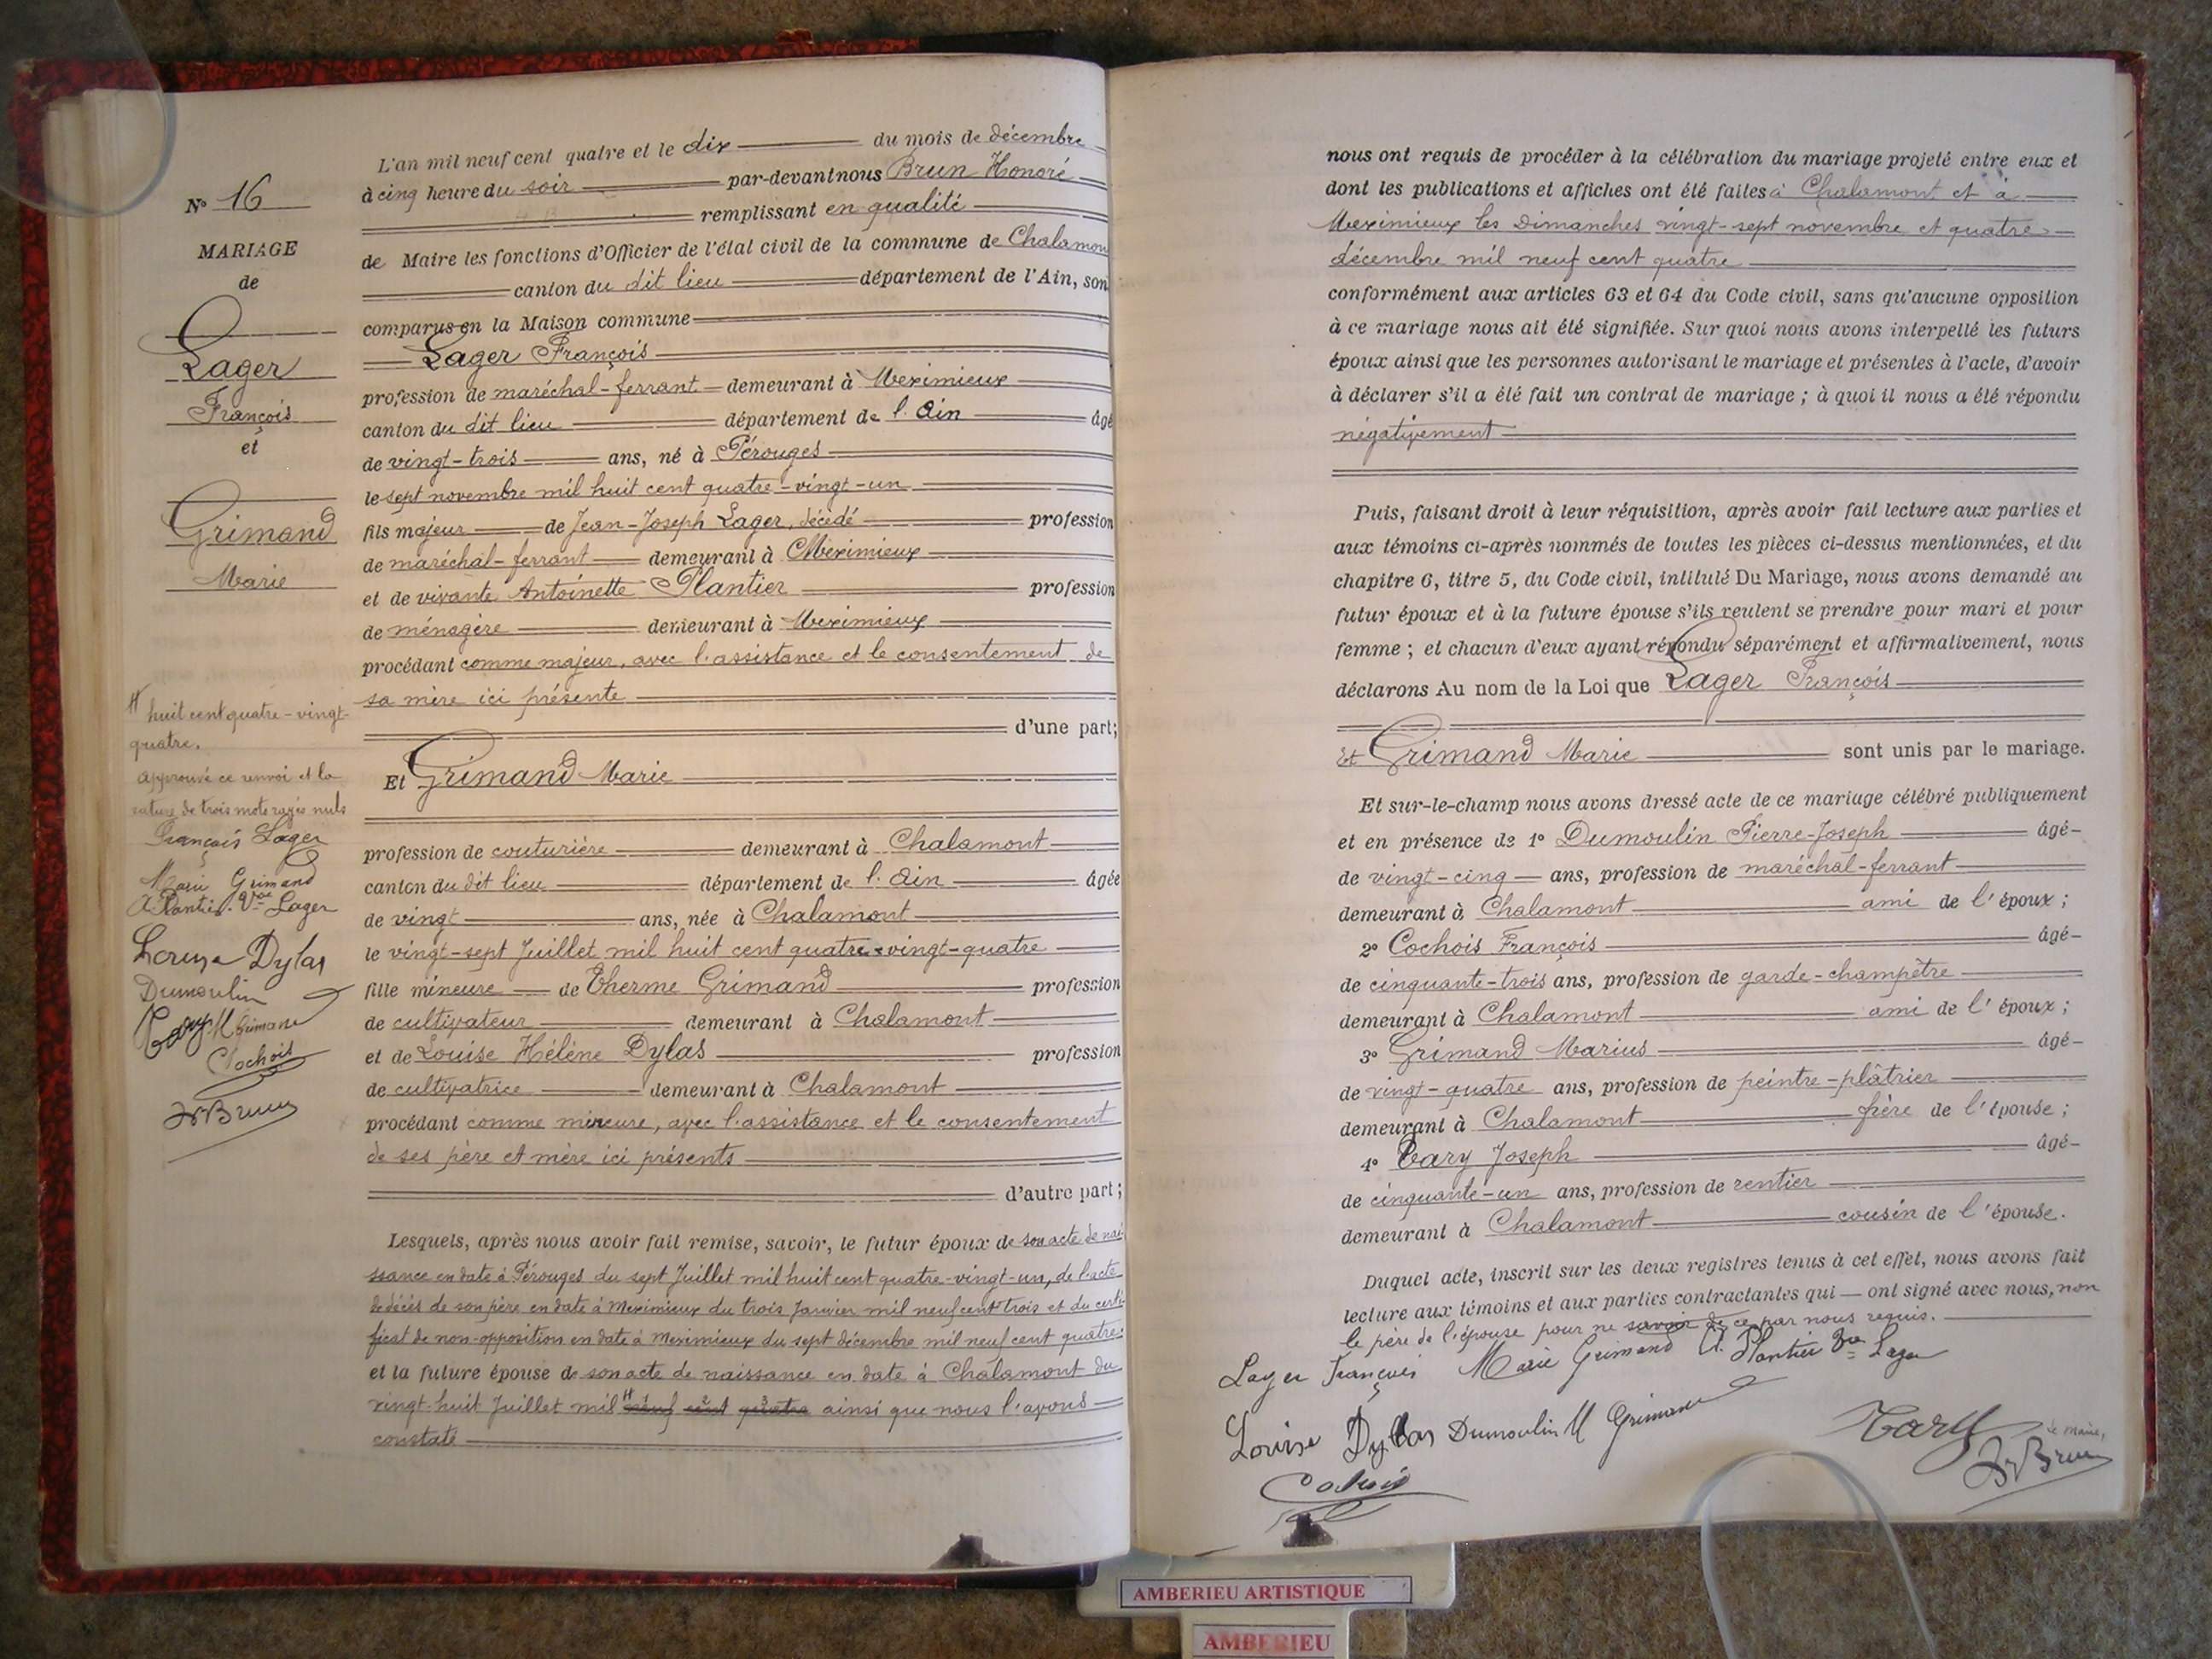 N° 16
MARIAGE
de
Lager
François
et
Grimand
Marie
L'an mil neuf cent quatre et le dix du mois de décembre
à cinq heure du soir par-devant nous Brun Honoré
remplissant en qualité
de Maire les fonctions d'Officier de l'état civil de la commune de Chalamon
canton du dit lieu département de l'Ain, son
comparus en la Maison commune
Lager François
profession de maréchal-ferrant demeurant à Meximieux
canton du dit lieu département de l'Ain âgé
de vingt-trois ans, né à Pérouges
le sept novembre mil huit cent quatre-vingt-un
fils majeur de Jean-Joseph Lager, décédé profession
de maréchal-ferrant demeurant à Meximieux
et de vivante Antoinette Plantier profession
de ménagère demeurant à Meximieux
procédant comme majeur, avec l'assistance et le consentement de
sa mère ici présente
d'une part;
Et Grimand Marie
profession de couturière demeurant à Chalamont
canton du dit lieu département de l'Ain âgée
de vingt ans, née à Chalamont
le vingt-sept Juillet mil huit cent quatre-vingt-quatre
fille mineure de Therme Grimand profession
de cultivateur demeurant à Chalamont
et de Louise Hélène Dylas profession
de cultivatrice demeurant à Chalamont
procédant comme mineure, avec l'assistance et le consentement
de ses père et mère ici présents
d'autre part;
Lesquels, après nous avoir fait remise, savoir, le futur époux de son acte de nais-
ssance en date à Pérouges du sept Juillet mil huit cent quatre-vingt-un, de l'acte
de décès de son père en date à Meximieux du trois Janvier mil neuf cent trois et du certi-
ficat de non-opposition en date à Meximieux du sept décembre mil neuf cent quatre.
et la future épouse de son acte de naissance en date à Chalamont du
vingt-huit Juillet mil neuf cent quatre ainsi que nous l'avons
constaté
huit cent quatre-vingt-
quatre.
Approuvé ce renvoi et la
rature de trois mots rayés nuls
François Lager
Marie Grimand
A. Plantier Vve Lager
Louise Dylas
Dumoulin
Tary M Grimand
Cochois
Hr Brun
nous ont requis de procéder à la célébration du mariage projeté entre eux et
dont les publications et affiches ont été faites à Chalamont et à
Meximieux les Dimanches vingt-sept novembre et quatre
décembre mil neuf cent quatre
conformément aux articles 63 et 64 du Code civil, sans qu'aucune opposition
à ce mariage nous ait été signifiée. Sur quoi nous avons interpellé les futurs
époux ainsi que les personnes autorisant le mariage et présentes à l'acte, d'avoir
à déclarer s'il a été fait un contrat de mariage ; à quoi il nous a été répondu
négativement
Puis, faisant droit à leur réquisition, après avoir fait lecture aux parties et
aux témoins ci-après nommés de toutes les pièces ci-dessus mentionnées, et du
chapitre 6, titre 5, du Code civil, intitulé Du Mariage, nous avons demandé au
futur époux et à la future épouse s'ils veulent se prendre pour mari et pour
femme ; et chacun d'eux ayant répondu séparément et affirmativement, nous
déclarons Au nom de la Loi que Lager François
Et Grimand Marie sont unis par le mariage.
Et sur-le-champ nous avons dressé acte de ce mariage célébré publiquement
et en présence de 1° Dumoulin Pierre-Joseph âgé
de vingt-cinq ans, profession de maréchal-ferrant
demeurant à Chalamont ami de l'époux ;
2° Cochois François âgé
de cinquante-trois ans, profession de garde-champêtre
demeurant à Chalamont ami de l'époux ;
3° Grimand Marius âgé
de vingt-quatre ans, profession de peintre-plâtrier
demeurant à Chalamont frère de l'épouse ;
4° Tary Joseph âgé
de cinquante-un ans, profession de rentier
demeurant à Chalamont cousin de l'épouse.
Duquel acte, inscrit sur les deux registres tenus à cet effet, nous avons fait
lecture aux témoins et aux parties contractantes qui — ont signé avec nous, non
le père de l'épouse pour ne savoir de ce par nous requis.
Lager François Marie Grimand A. Plantier Vve Lager
Louise Dylas Dumoulin M Grimand Tary
Le Maire,
Cochois Hr Brun
AMBERIEU ARTISTIQUE
AMBERIEU